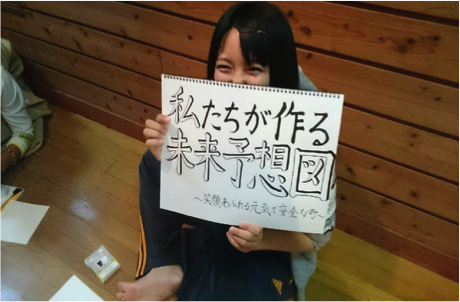 私たちが作る
未来予想図
〜笑顔あふれる元気で安全な町〜